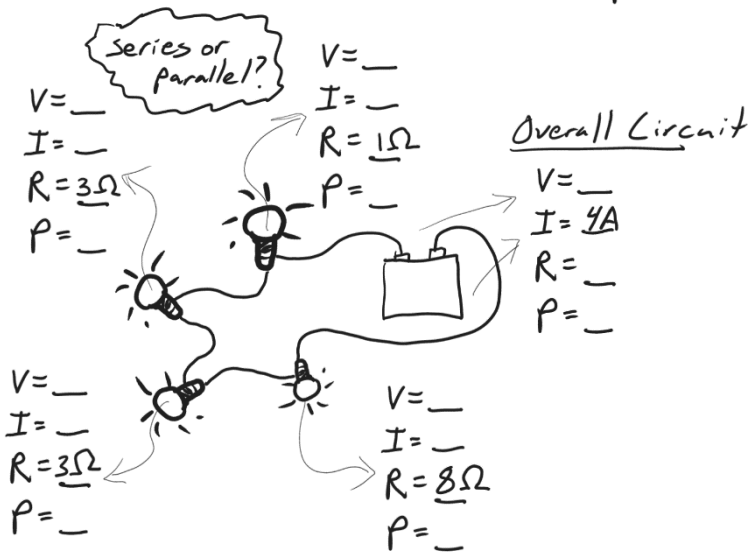 Series or
parallel?
V = __
I = __
R = 3Ω
P = __
V = __
I = __
R = 1Ω
P = __
Overall Circuit
V = __
I = 4A
R = __
P = __
V = __
I = __
R = 3Ω
P = __
V = __
I = __
R = 8Ω
P = __